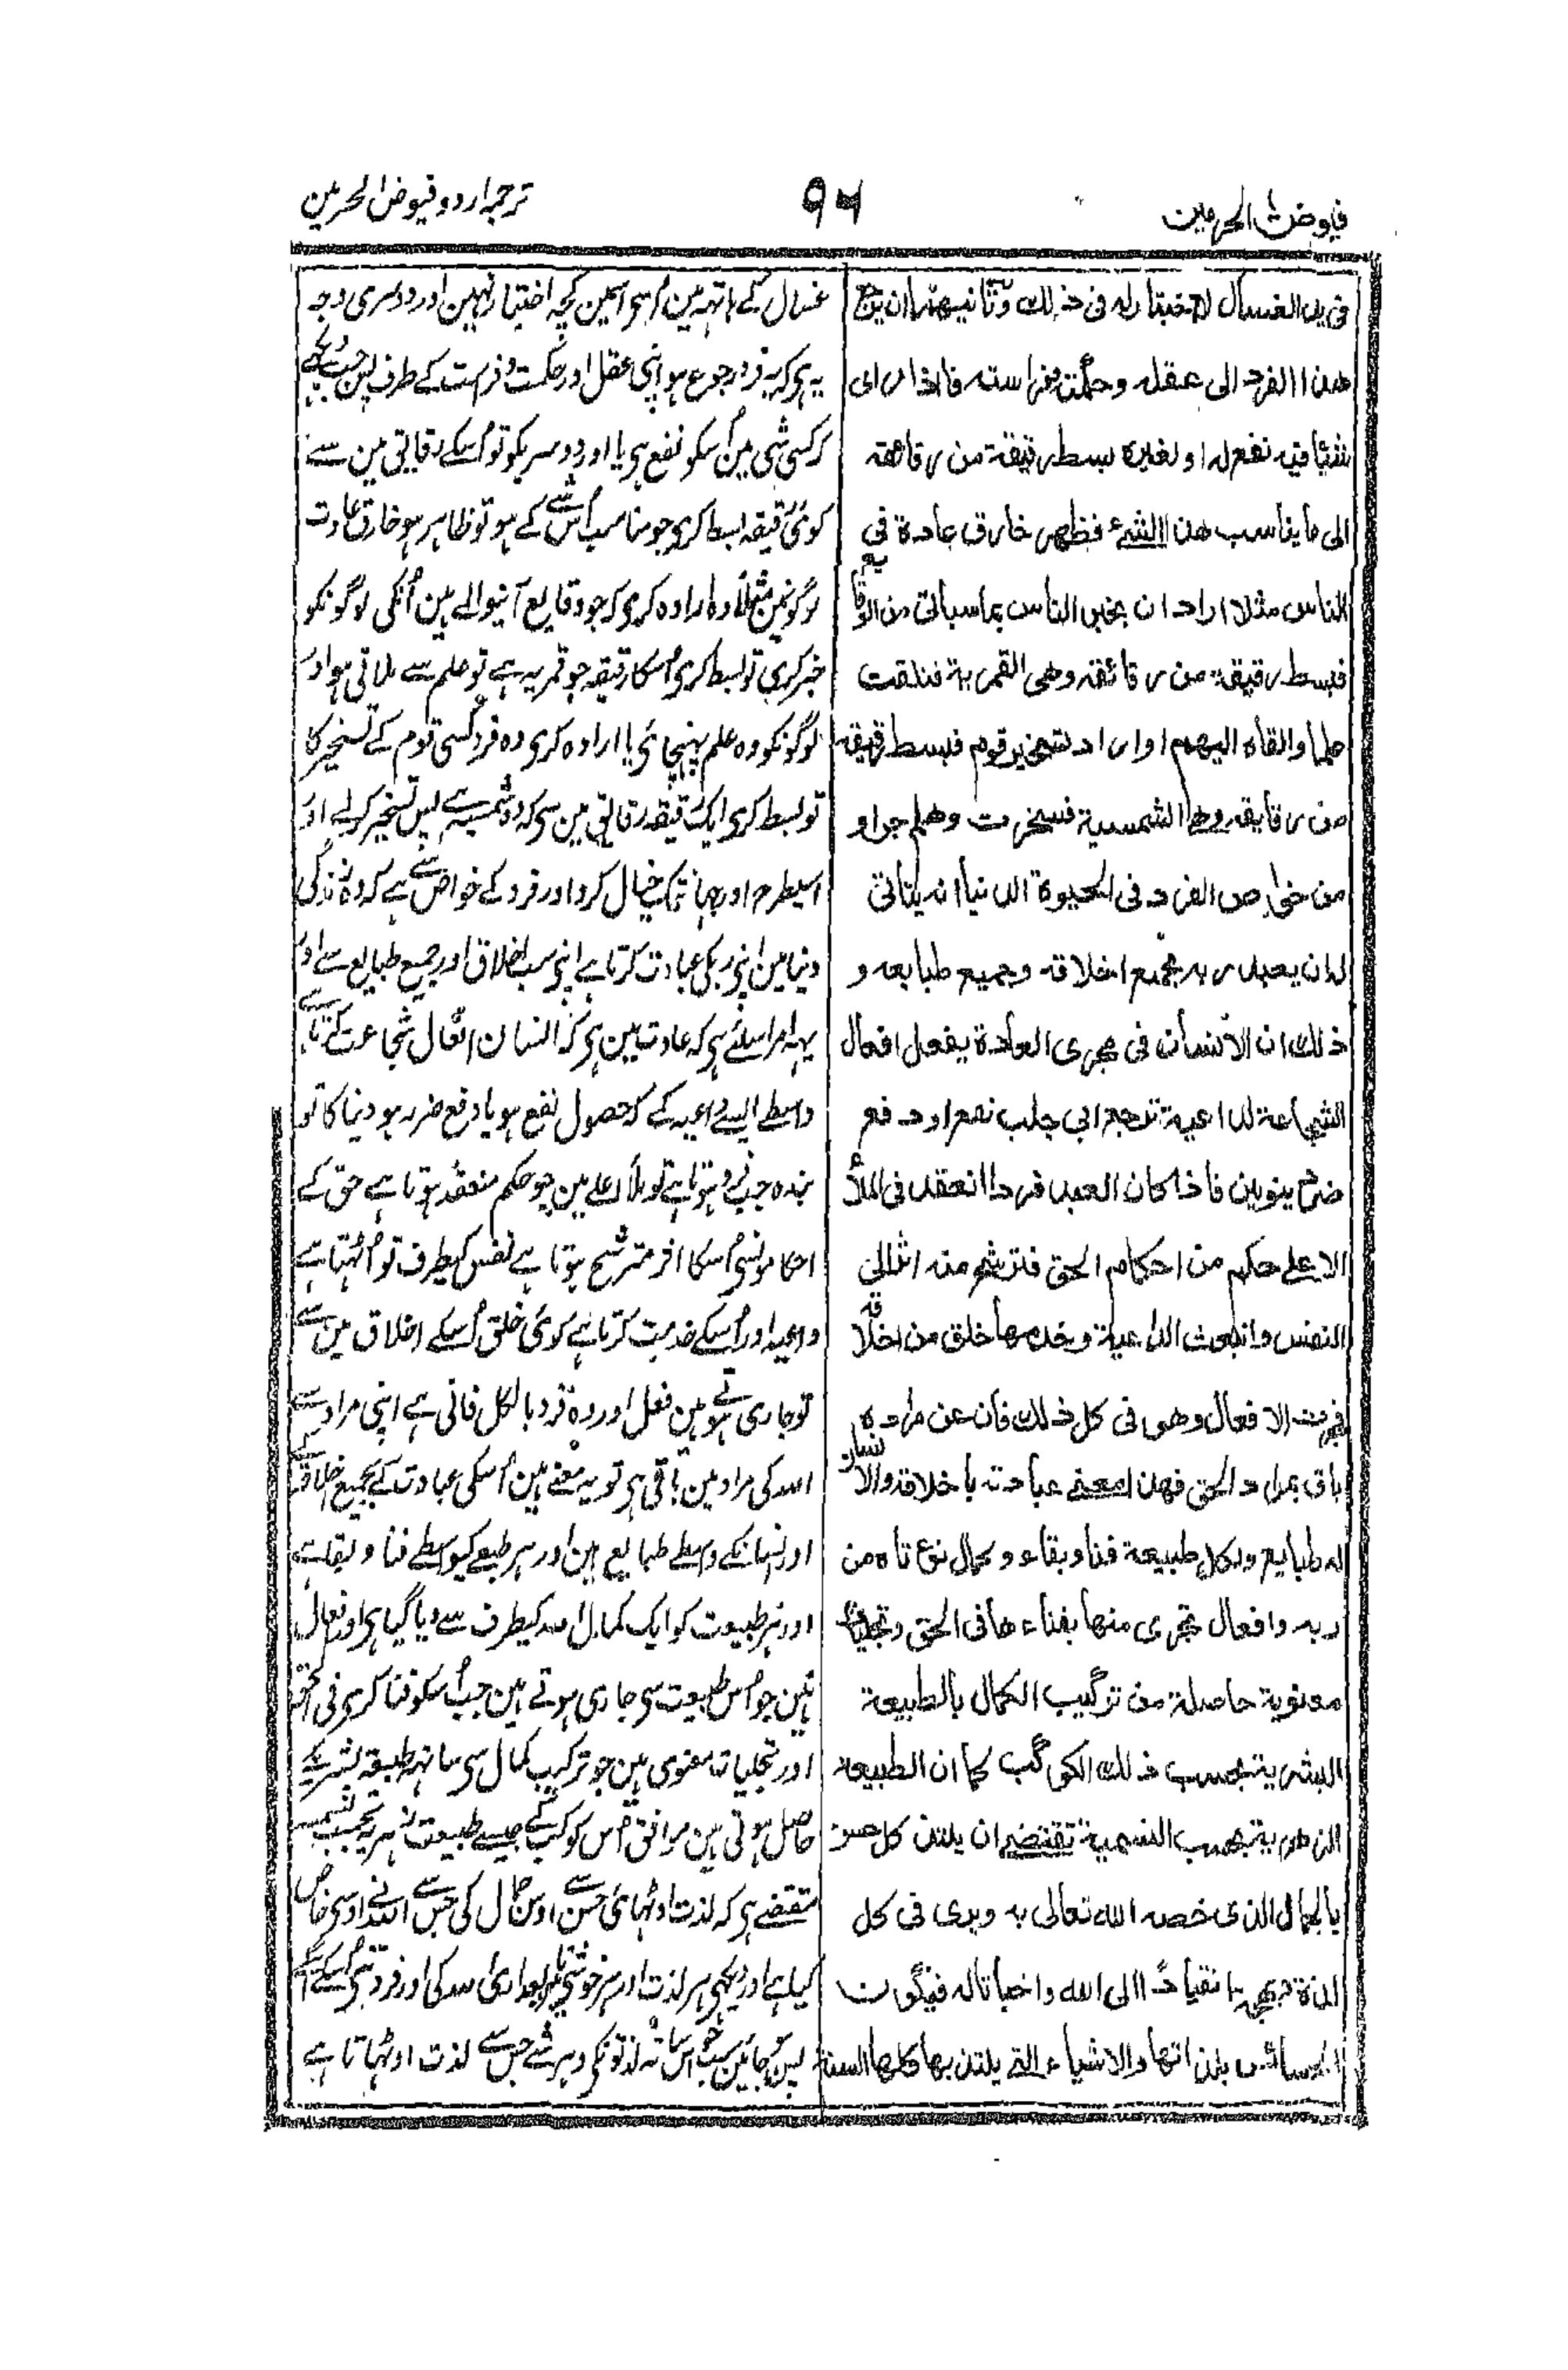 فيوض الحرمين
۹۶
ترجمہ اردو فیوض الحرمین
فی ید الغسال لا اختیار له فی ذلك وثانیهما ان یرجع
هذا الفرد الی عقله وحکمته وفراسته فاذا رای
شیئا فیه نفع له او لغیره بسط رقیقة من رقائقه
الی ما یناسب هذا الشیء فظهر خارق عادة فی
الناس مثلا اراد ان یخبر الناس بما سیاتی من الوقایع
فبسط رقیقة من رقائقه وهی القمریة فتلقت
علما والقاه الیهم او اراد تسخیر قوم فبسط رقیقة
من رقایقه وهی الشمسیة فسخرت وهلم جرا و
من خواص الفرد فی الحیوة الدنیا انه یتاتی
له ان یعبد ربه بجمیع اخلاقه وجمیع طبایعه و
ذلك ان الانسان فی مجری العادة یفعل افعال
الشجاعة لداعیة ترجع الی جلب نفع او دفع
ضرر دنیویین فاذا کان العبد فردا انعقد فی الملأ
الاعلی حکم من احکام الحق فترشح منه اثر الی
النفس وانبعث الداعیة وخدمها خلق من اخلاقه
فجرت الافعال وهو فی کل ذلك فان عن مراده
باق بمراد الحق فهذا معنی عبادته باخلاقه والانسان
له طبایع ولکل طبیعة فنا وبقاء وکمال نوع تاه من
ربه وافعال تجری منها بفناءها فی الحق وتجلیات
معنویة حاصلة من ترکیب الکمال بالطبیعة
البشریة بحسب ذلك الکوکب کما ان الطبیعة
الزهریة بحسب النسمیة تقتضی ان یلتذ کل حسن
بالجمال الذی خصه الله تعالی به ویری فی کل
لذة وبهجة انقیادا الی الله واخباتا له فیکون
الحساس بلذاتها والاشیاء التی یلتذ بها کلها السنة
غسال کے ہاتہہ مین اسی اسمین کچہ اختیار نہین اور دوسری وجہ
یہ ہی کہ یہ فرد رجوع ہو اپنی عقل اور حکمت و فراست کے طرف پس جب دیکھے
کہ کسی شی مین اُسکو نفع ہی یا اور دوسریکو تو اُسکے رقایق مین سے
کوئی رقیقہ بسط کری جو مناسب اُس شے کے ہو تو ظاہر ہو خارق عادت
لوگونمین مثلا وہ ارادہ کری کہ جو وقایع آنیوالے ہین اُنکی لوگونکو
خبر کری تو بسط کری اُسکا رقیقہ جو قمریہ ہے تو علم سے ملاقی ہو اور
لوگونکو وہ علم پہنچائی یا ارادہ کری وہ فرد کسی قوم کے تسخیر کا
تو بسط کری ایک رقیقہ رقایق مین سی کہ وہ شمسیہ ہے پس تسخیر کرلے اور
اسیطرح اور جہانتک خیال کرو اور فرد کے خواص سے ہے کہ وہ زندگی
دنیا مین اپنی ربکی عبادت کرتا ہے اپنی سب اخلاق اور جمیع طبایع سے اور
یہہ امر اسلئے ہی کہ عادت مین ہی کہ انسان افعال شجاعت کرتا ہے
واسطے ایسے داعیہ کے کہ حصول نفع ہو یا دفع ضرر ہو دنیا کا تو
بندہ جب فرد ہوتا ہے تو ملأ اعلے مین جو حکم منعقد ہوتا ہے حق کے
احکام سی اُسکا اثر مترشح ہوتا ہے نفس کیطرف تو اُٹہتا ہے
داعیہ اور اُسکے خدمت کرتا ہے کوئی خلق اُسکے اخلاق مین سے
تو جاری ہوتے ہین فعل اور وہ فرد بالکل فانی ہے اپنی مراد سے
اللہ کی مراد مین باقی ہی تو یہ معنے ہین اُسکی عبادت کے بجمیع اخلاقہ
اور انسانکے واسطے طبایع ہین اور ہر طبع کیواسطے فنا و بقا ہے
اور ہر طبیعت کو ایک کمال اللہ کیطرف سے دیا گیا ہی اور افعال
ہین جو اُس طبیعت سی جاری ہوتے ہین جب اُسکو فنا کری فی الحق
اور تجلیات معنوی ہین جو ترکیب کمال سی ساتہہ طبیعہ بشریہ کے
حاصل ہوتی ہین موافق اُس کوکب کے جیسے طبیعت زہریہ بحسب نسمیہ
مقتضے ہی کہ لذت اوٹہائی حسن اوس جمال کی جس سے اللہ نے اوسی خاص
کیا ہے اور دیکہی ہر لذت اور ہر خوشی مین تابعداری اللہ کی اور فروتنی اُسکے لئے
پس ہو جائین سب حواس ساتہہ لذتونکی و ہر شے جس سے لذت اوٹہاتا ہے